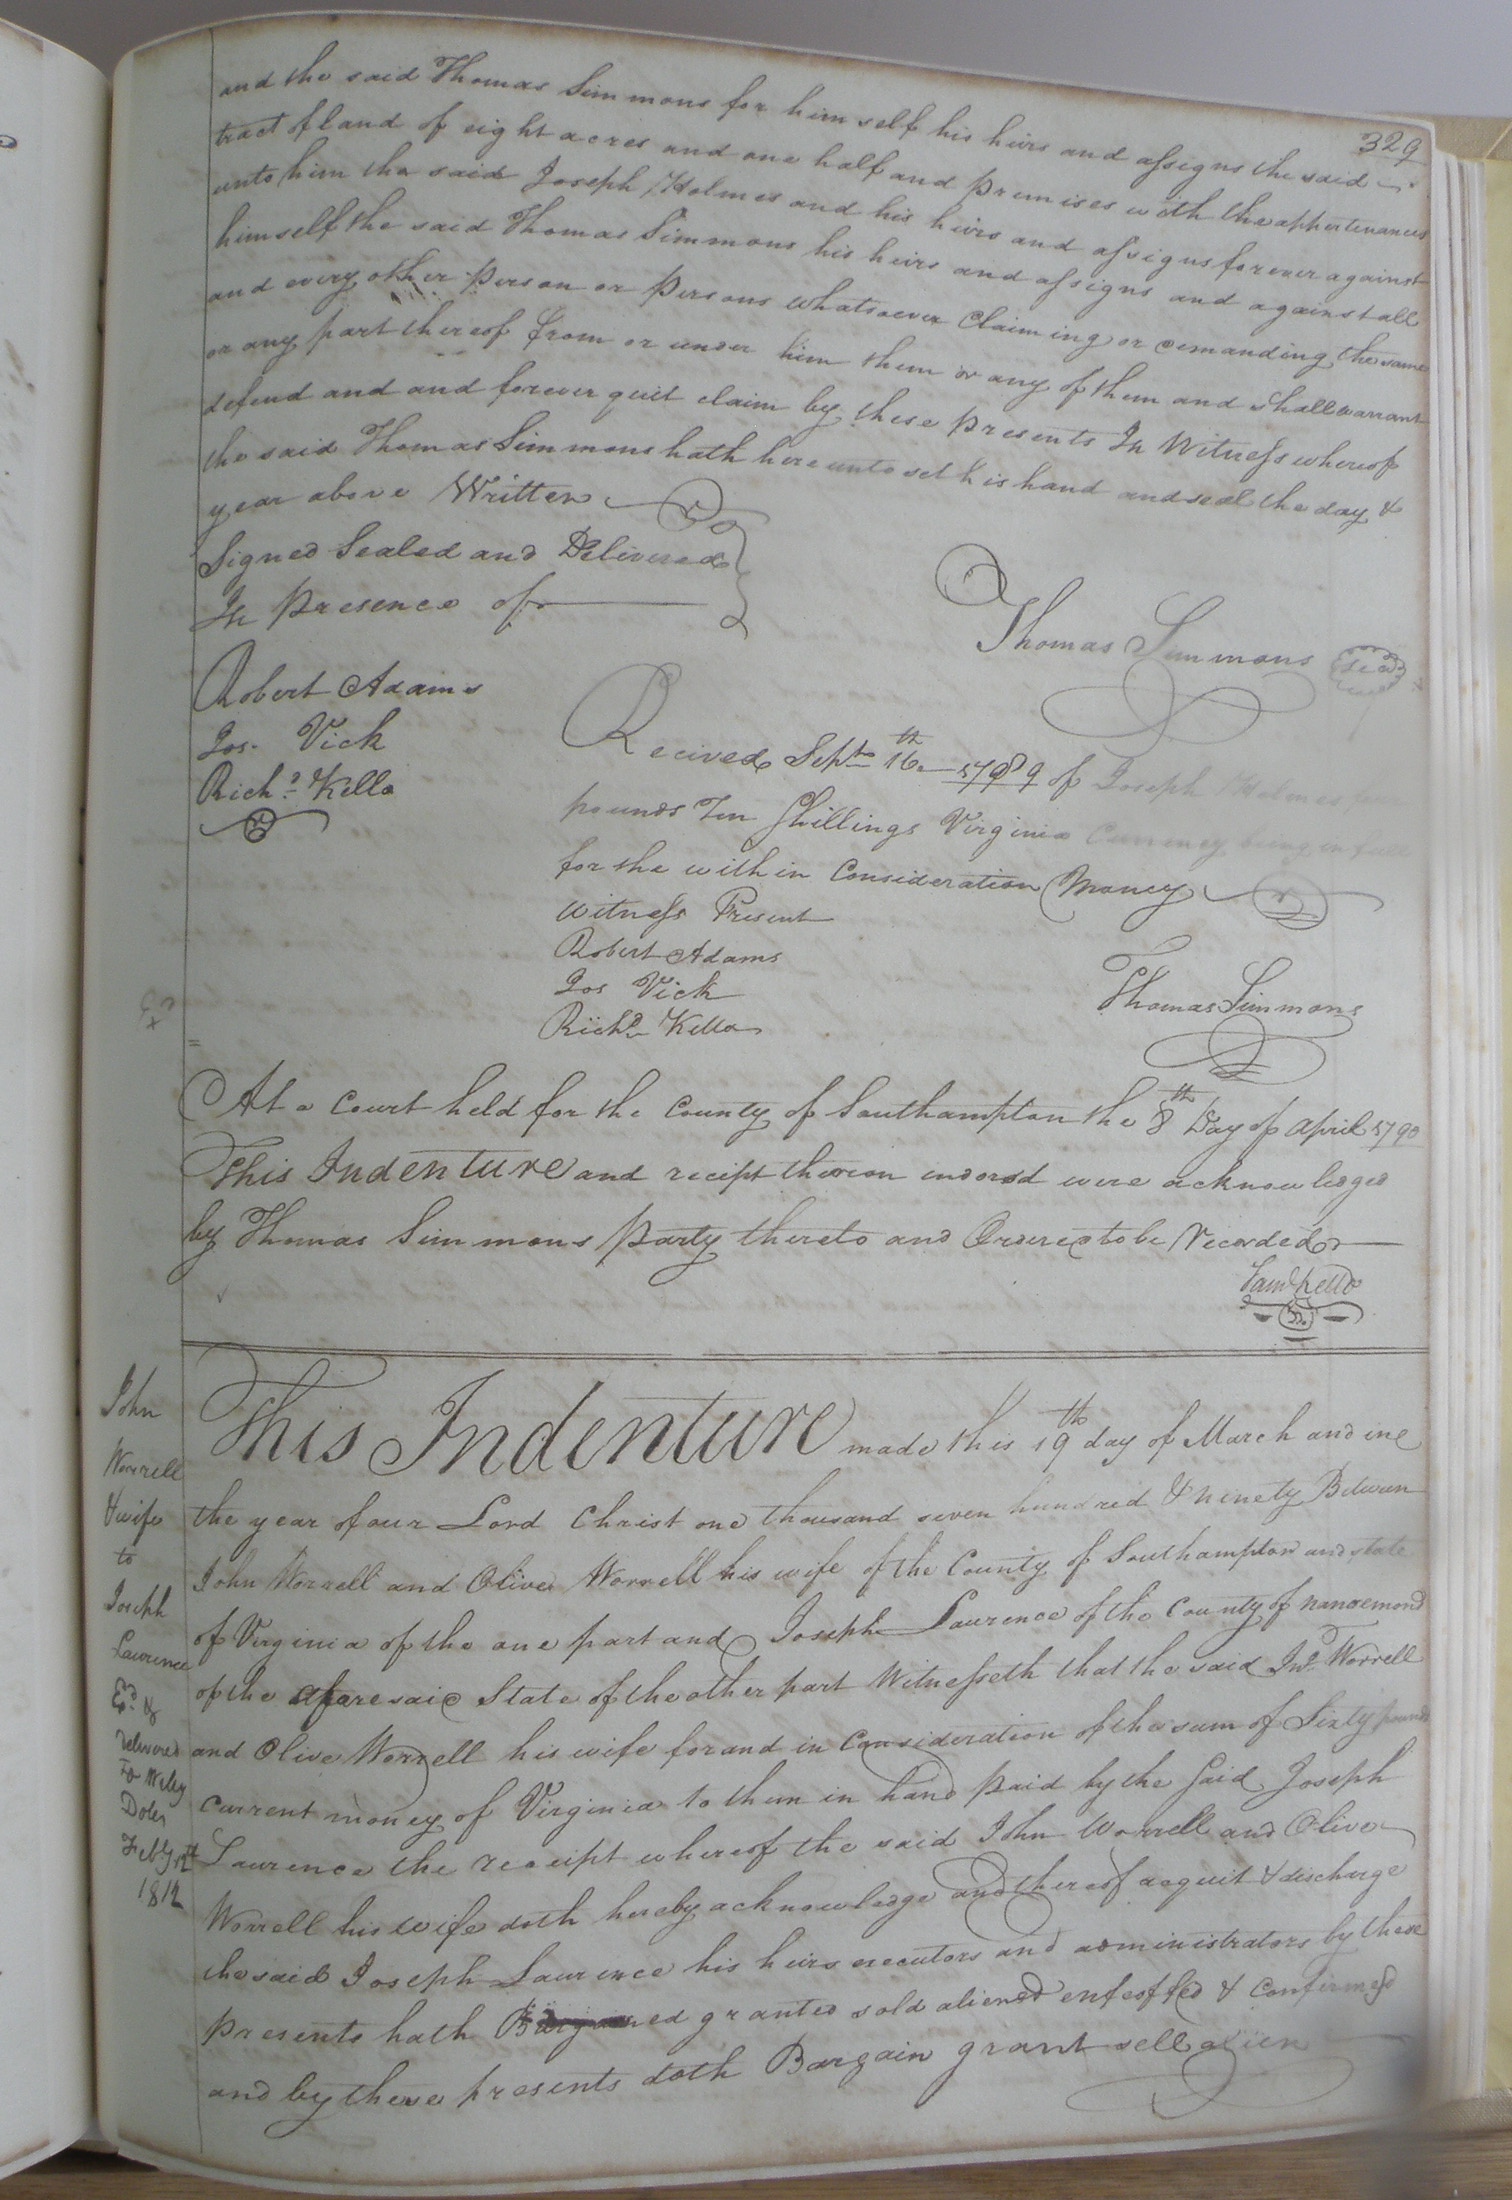 329
and the said Thomas Simmons for him self his heirs and assigns the said
tract of land of eight acres and one half and premises with the appertenances
unto him the said Joseph Holmes and his heirs and assigns forever against
himself the said Thomas Simmons his heirs and assigns and against all
and every other person or persons whatsoever Claiming or demanding the same
or any part thereof from or under him them or any of them and shall warrant
defend and and forever quit claim by these presents In Witness whereof
the said Thomas Simmons hath hereunto set his hand and seal the day &
year above Written
Signed Sealed and Delivered
In presence of
Thomas Simmons seal
Robert Adams
Jos. Vick
Richd. Kello
Recived Sept. 16th 1789 of Joseph Holmes
pounds Ten Shillings Virginia Currency being in full
for the within Consideration Money
Witness Present
Robert Adams
Jos Vick
Richd Kello
Thomas Simmons
At a Court held for the County of Southampton the 8th Day of April 1790
This Indenture and recipt thereon endorsd were acknowledged
by Thomas Simmons party thereto and Ordered to be Recorded
Saml Kello
John
Worrell
& wife
to
Joseph
Laurence
Exd. &
Delivered
To Wiley
Doles
Feby 12th
1812
This Indenture made this 19th day of March and in
the year of our Lord Christ one thousand seven hundred & ninety Between
John Worrell and Olive Worrell his wife of the County of Southampton and state
of Virginia of the one part and Joseph Laurence of the County of nansemond
of the aforesaid State of the other part Witnesseth that the said Jno. Worrell
and Olive Worrell his wife for and in Consideration of the sum of Sixty pounds
current money of Virginia to them in hand paid by the said Joseph
Laurence the receipt whereof the said John Worrell and Olive
Worrell his wife doth hereby acknowledge and thereof acquit & discharge
the said Joseph Laurence his heirs executors and administrators by these
presents hath Bargained granted sold aliened enfeoffed & Confirmed
and by these presents doth Bargain grant sell alien